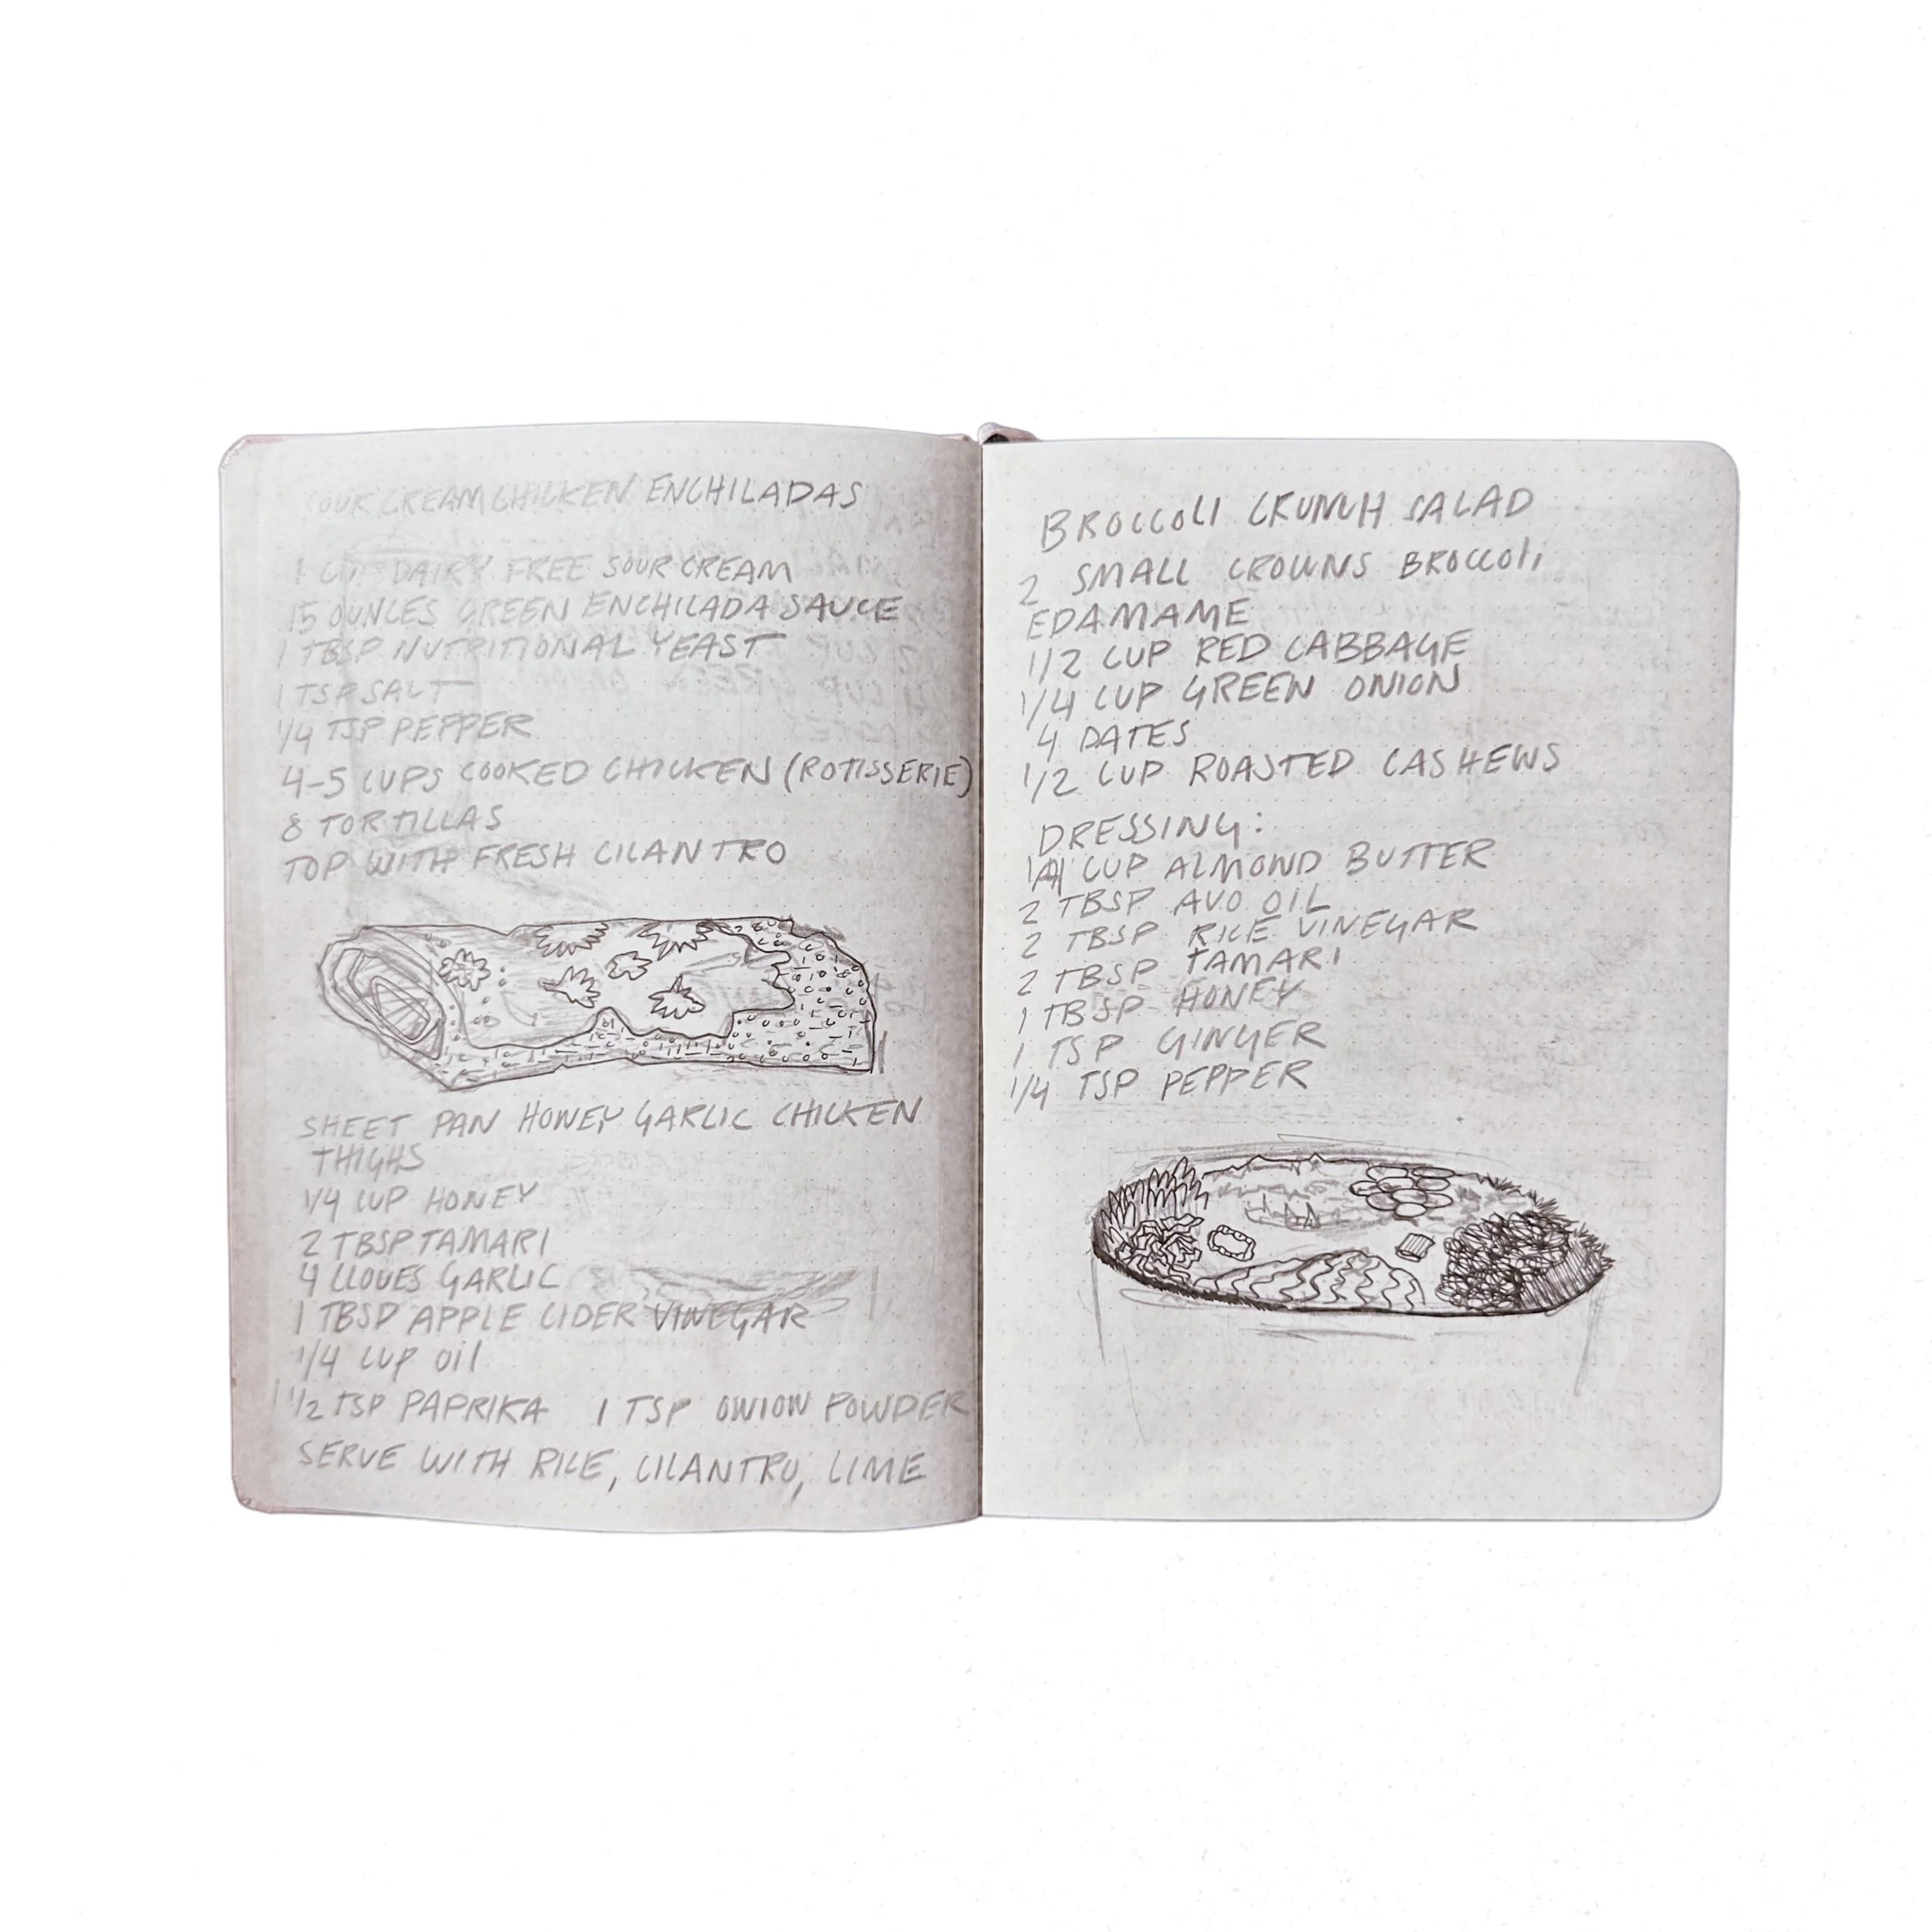 SOUR CREAM CHICKEN ENCHILADAS
1 CUP DAIRY FREE SOUR CREAM
15 OUNCES GREEN ENCHILADA SAUCE
1 TBSP NUTRITIONAL YEAST
1 TSP SALT
1/4 TSP PEPPER
4-5 CUPS COOKED CHICKEN (ROTISSERIE)
8 TORTILLAS
TOP WITH FRESH CILANTRO
SHEET PAN HONEY GARLIC CHICKEN
THIGHS
1/4 CUP HONEY
2 TBSP TAMARI
4 CLOVES GARLIC
1 TBSP APPLE CIDER VINEGAR
1/4 CUP OIL
1 1/2 TSP PAPRIKA 1 TSP ONION POWDER
SERVE WITH RICE, CILANTRO, LIME
BROCCOLI CRUNCH SALAD
2 SMALL CROWNS BROCCOLI
EDAMAME
1/2 CUP RED CABBAGE
1/4 CUP GREEN ONION
4 DATES
1/2 CUP ROASTED CASHEWS
DRESSING:
CUP ALMOND BUTTER
2 TBSP AVO OIL
2 TBSP RICE VINEGAR
2 TBSP TAMARI
1 TBSP HONEY
1 TSP GINGER
1/4 TSP PEPPER